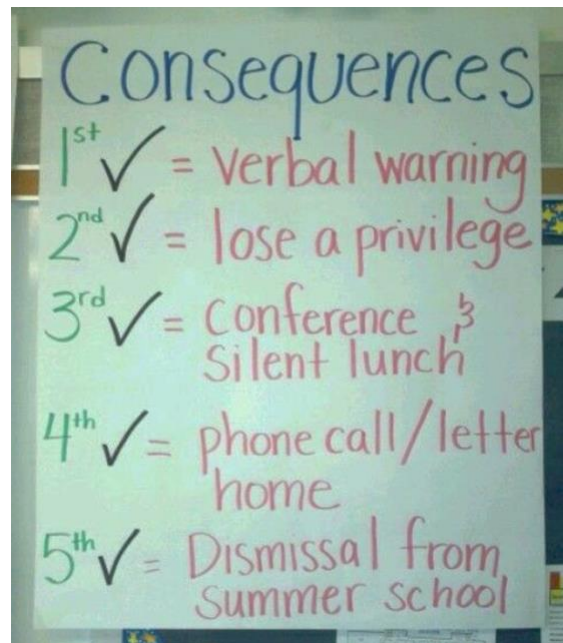 Consequences
1st ✓ = verbal warning
2nd ✓ = lose a privilege
3rd ✓ = Conference &
Silent lunch
4th ✓ = phone call/letter
home
5th ✓ = Dismissal from
summer school